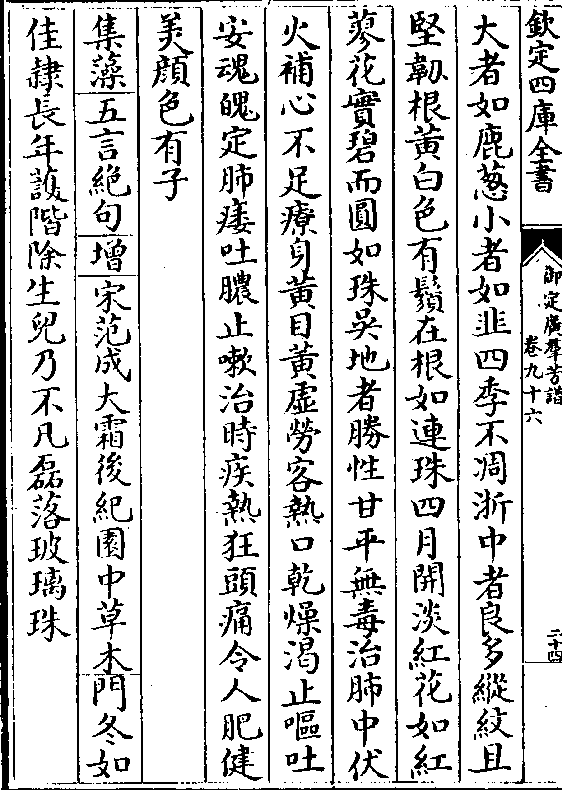 欽定四庫全書
御定廣羣芳譜
卷九十六
二十四
大者如鹿葱小者如韭四季不凋浙中者良多縱紋且
堅韌根黃白色有鬚在根如連珠四月開淡紅花如紅
蓼花實碧而圓如珠吳地者勝性甘平無毒治肺中伏
火補心不足療身黃目黃虛勞客熱口乾燥渴止嘔吐
安魂魄定肺痿吐膿止嗽治時疾熱狂頭痛令人肥健
美顔色有子
集藻五言絶句增宋范成大霜後紀園中草木門冬如
佳隷長年護階除生兒乃不凡磊落玻璃珠